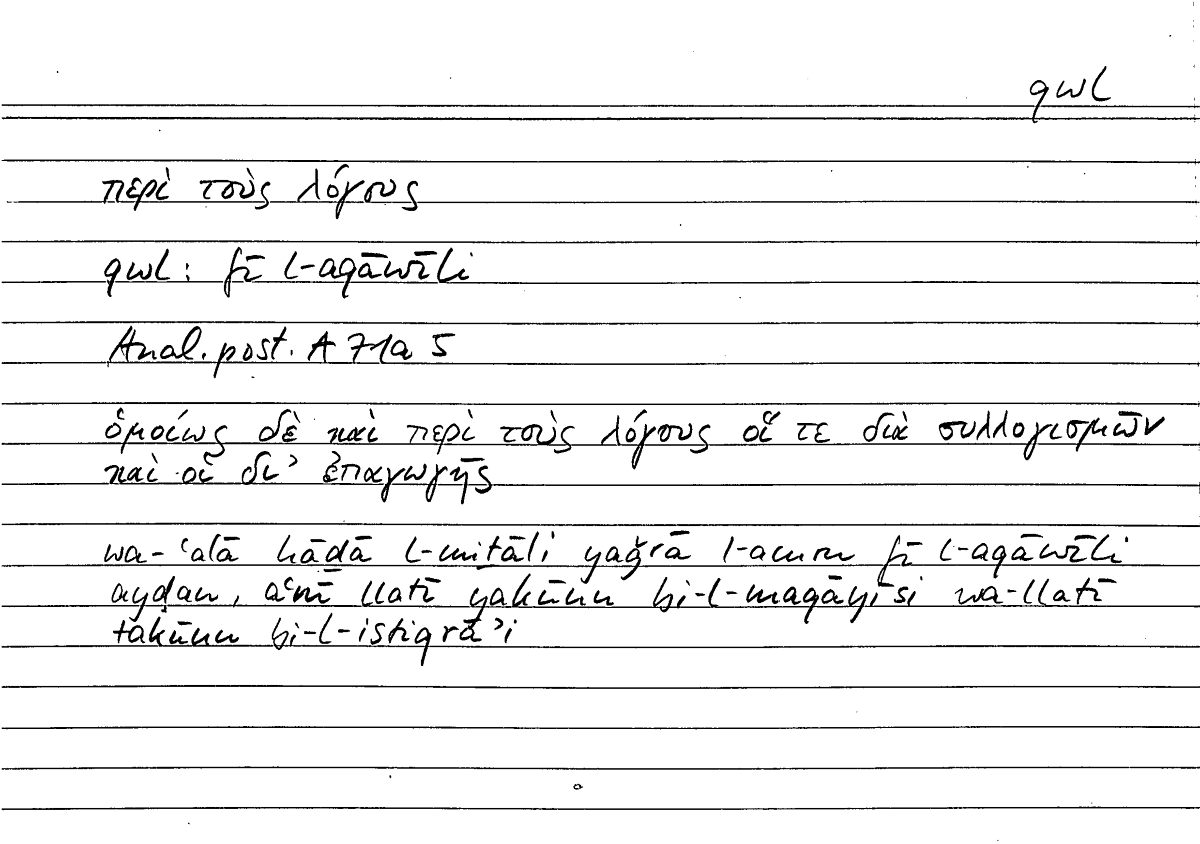 qwl
περὶ τοὺς λόγους
qwl: fī l-aqāwīli
Anal. post. A 71a 5
ὁμοίως δὲ καὶ περὶ τοὺς λόγους οἵ τε διὰ συλλογισμῶν
καὶ οἱ δι’ ἐπαγωγῆς
wa-ʿalā hāḏā l-miṯāli yaǧrā l-amru fī l-aqāwīli
ayḍan, aʿnī llatī yakūnu bi-l-maqāyīsi wa-llatī
takūnu bi-l-istiqrāʾi